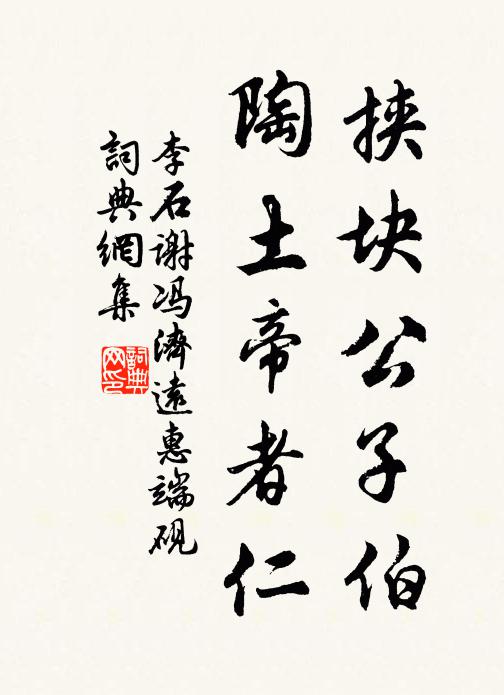 挟块公子伯
陶土帝者仁
李石谢冯濟遠惠端砚
詞典網集
詞典网印